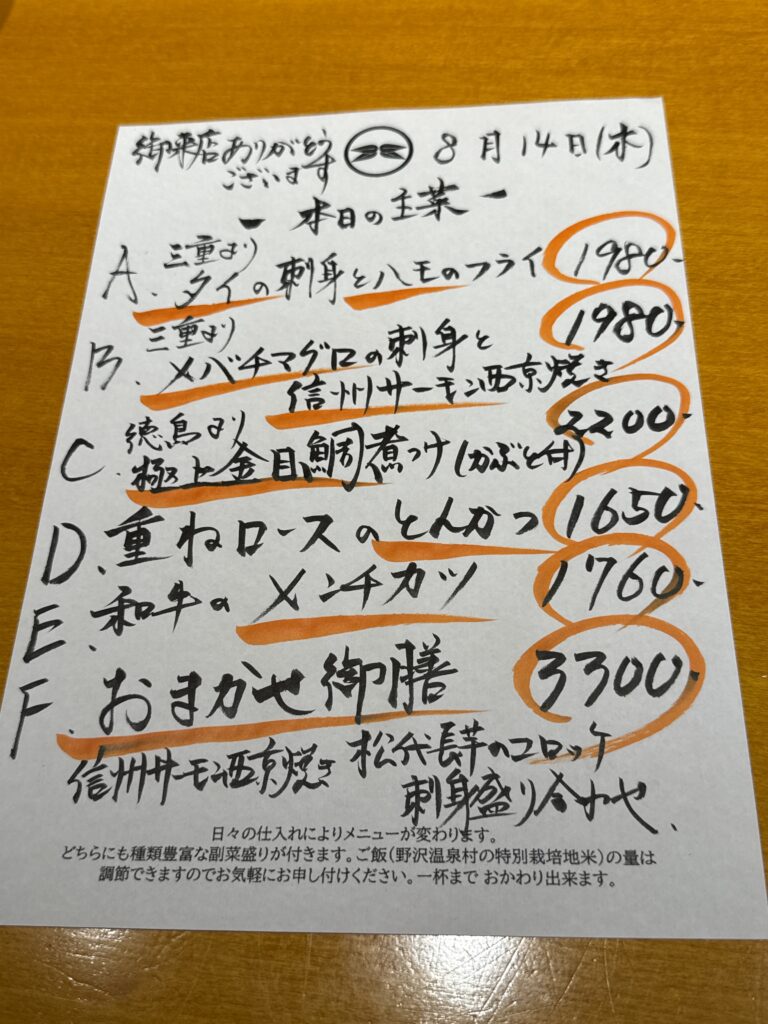 御来店ありがとう
ございます
8月14日(木)
ー 本日の主菜 ー
三重より
A. タイの刺身とハモのフライ 1980-
三重より
B. メバチマグロの刺身と 1980-
信州サーモン西京焼き
徳島より
C. 極上金目鯛煮つけ(かぶと付) 2200-
D. 重ねロースのとんかつ 1650-
E. 和牛のメンチカツ 1760-
F. おまかせ御膳 3300-
信州サーモン西京焼き 松代長芋のコロッケ
刺身盛り合わせ、
日々の仕入れによりメニューが変わります。
どちらにも種類豊富な副菜盛りが付きます。ご飯(野沢温泉村の特別栽培地米)の量は
調節できますのでお気軽にお申し付けください。一杯まで おかわり出来ます。